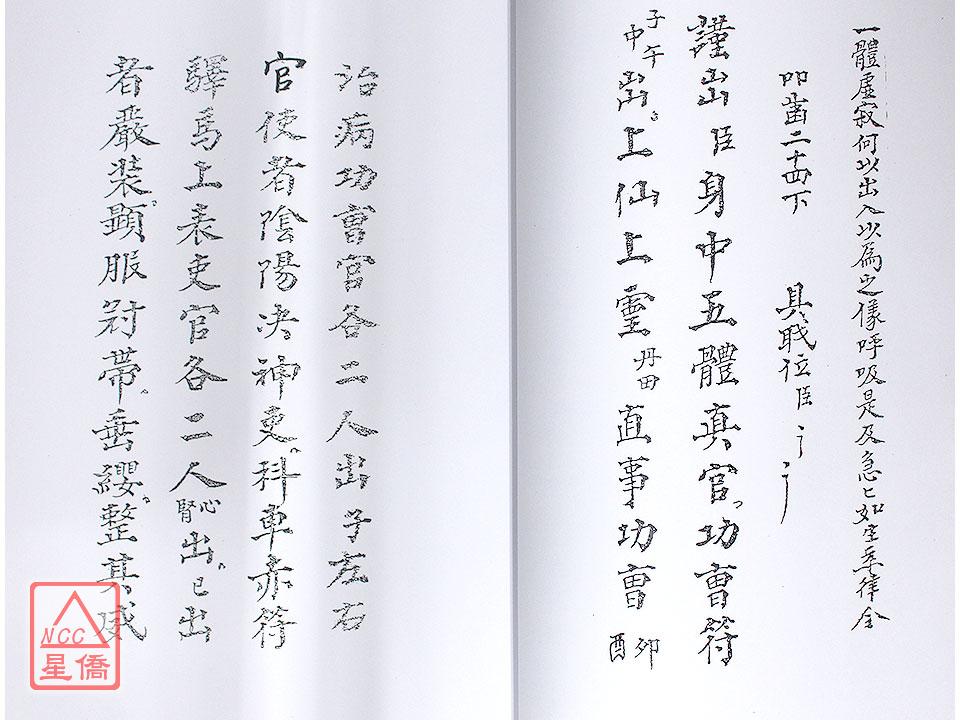 一體虛寂何以出入以為之儀呼吸是及急〻如生炁律令
叩齒二十四下 具職位臣
謹出臣身中五體真官功曹符
子午中出上仙上靈丹田直事功曹卯酉
治病功曹官各二人出子左右
官使者陰陽决神吏科車赤符
驛馬上表吏官各二人心腎出已出
者嚴裝顯服冠帶垂纓整其威
NCC
星僑